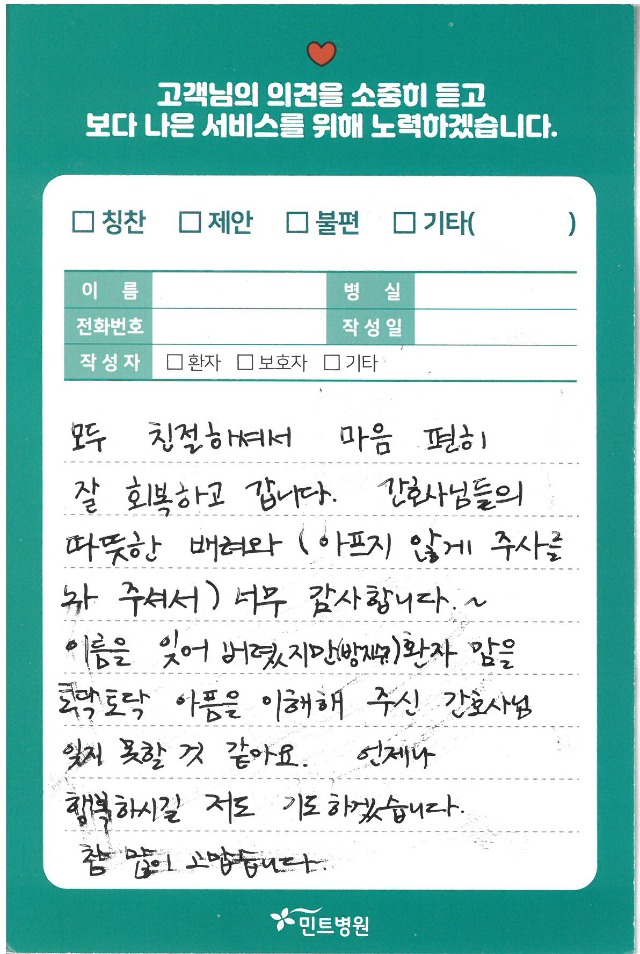 고객님의 의견을 소중히 듣고
보다 나은 서비스를 위해 노력하겠습니다.
☐ 칭찬 ☐ 제안 ☐ 불편 ☐ 기타( )
이 름 병 실
전화번호 작성일
작성자 ☐ 환자 ☐ 보호자 ☐ 기타
모두 친절하셔서 마음 편히
잘 회복하고 갑니다. 간호사님들의
따뜻한 배려와 (아프지 않게 주사를
놔 주셔서) 너무 감사합니다.~
이름을 잊어 버렸지만 환자 맘을
토닥토닥 아픔을 이해해 주신 간호사님
잊지 못할 것 같아요. 언제나
행복하시길 저도 기도하겠습니다.
참 많이 고맙습니다.
민트병원